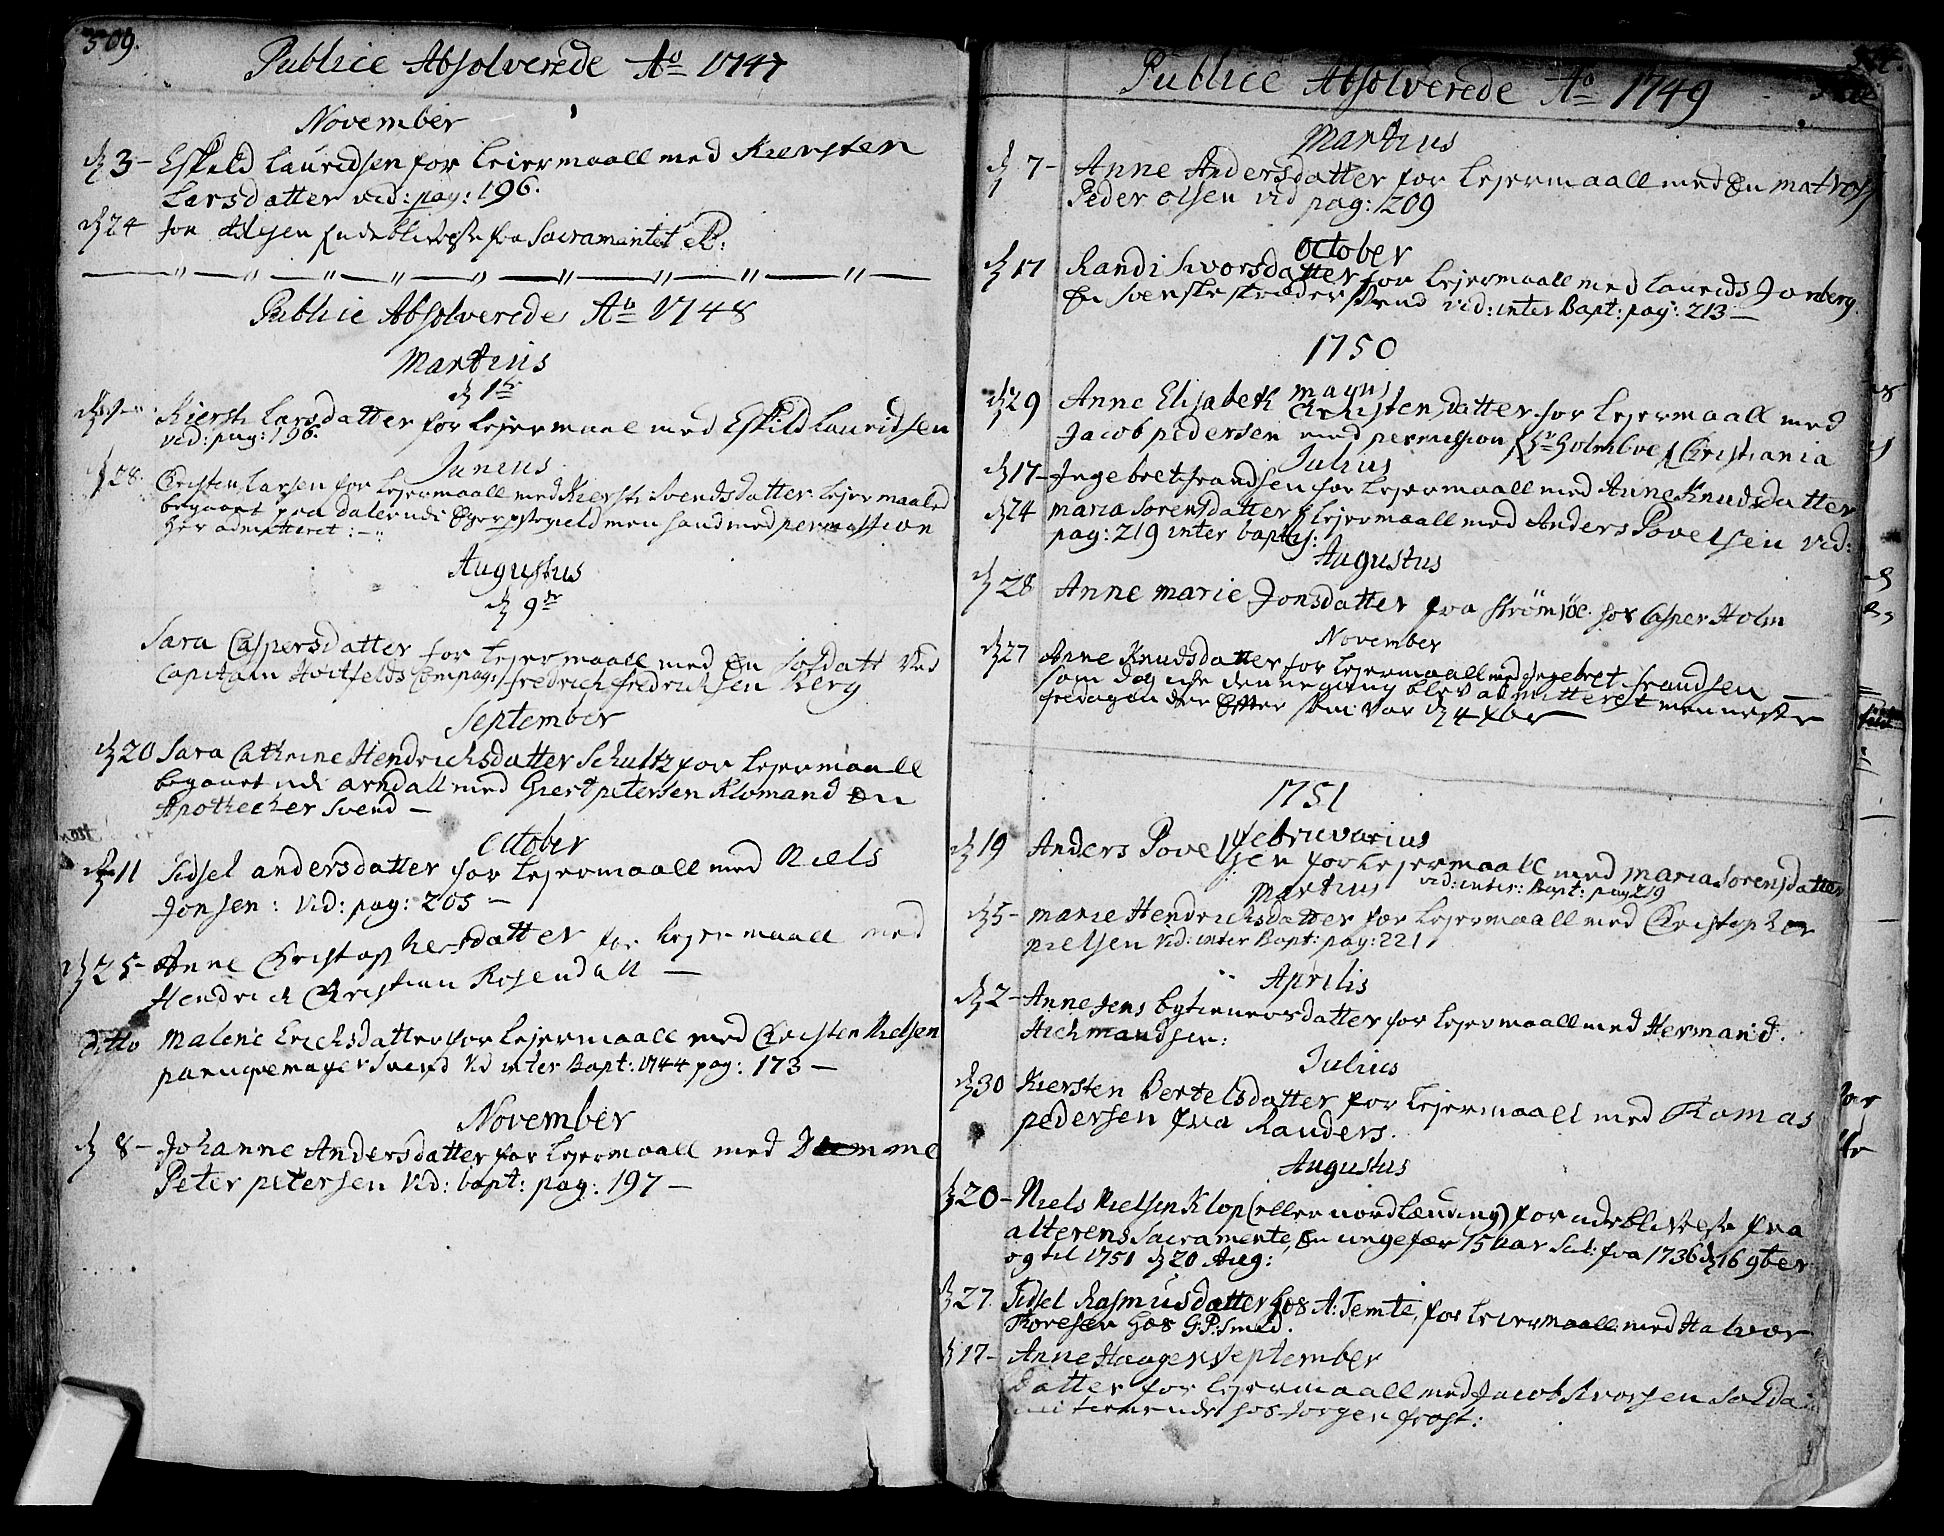 509.
Publice Absolverede Ao 1747
November
d 3 - Eskild Lauridsen for Leiermaall med Kiersten
Larsdatter vid: pag: 196.
d 24 for Udeblivelse fra Sacramentet
Publice Absolverede Ao 1748
Martius
d 1ste
Kiersti Larsdatter for Lejermaal med Eskild Lauridsen
vid: pag: 196.
Junius
d 28. Christen Larsen for Lejermaall med Kiersti Svendsdatter Lejermaaled
begaaet paa men hand med permission
her admitteret : -
Augustus
d 9de
Sara Caspersdatter for Lejermaall med En Soldatt ved
Capitain Hvitfelds Compag: fredrich fredrichsen Berg
September
d 20 Sara Cathrine Hendrichsdatter Schultz for Lejermaall
begaaet udi arndall med Giert petersen Klomand En
Apothecher Svend -
October
d 11 Sidsel andersdatter for Lejermaall med Niels
Jonsen : vid: pag: 205 -
d 25 - Anne Christophersdatter for Lejermaall med
Hendrich Christian Rosendall -
ditto Malene Erichsdatter for Lejermaall med Christen Nielsen
paruqvemager Svend Vid inter Bapt: 1744 pag: 173 -
November
d 8 - Johanne Andersdatter for Lejermaall med
Peter petersen Vid: bapt: pag: 197 -
Publice Absolverede Ao 1749
Martius
d 7 - Anne Andersdatter for Lejermaall med En matros
Peder Olsen vid pag: 209
October
d 17 Randi Sivorsdatter for Lejermaall med Laurids Jonberg
En Svenske skreder Svend vid: inter Bapt: pag: 213 -
1750
Majus
d 29 Anne Elisabeth Christensdatter for Lejermaall med
Jacob pedersen med permission Christiania
Julius
d 17 - Ingebret frandsen for Lejermaall med Anne Knudsdatter
d 24 maria Sorensdatter f Lejermaall med Anders Povelsen vid:
pag: 219 inter bapt:
Augustus
d 28 Anne marie Jonsdatter fra Strømsøe for Casper Holm
November
d 27 Anne Knudsdatter for Lejermaall med Ingebret frandsen -
som dog icke denne gang blev admitteret menneske
fredagen der Effter som var d 4 Xbr
1751
Februarius
d 19 Anders Povelsen for Lejermaall med maria Sorensdatter
vid: inter: Bapt: pag 219
Martius
d 5 - marie Hendrichsdatter for Lejermaall med Christopher
nielsen Vid: inter Bapt: pag: 221
Aprilis
d 2 - Anne Jens datter for Lejermaall med Hermand
Julius
d 30 Kiersten Bertelsdatter for Lejermaall med Thomas
pedersen fra Randers.
Augustus
d 20 - Niels Nielsen Klop (eller nordlænding) for udeblivelse fra
alterens Sacramente, En ungefær 15 aar Scil: fra 1736 d 16 9ber
og til 1751 d 20 Aug:
d 27. Sidsel Rasmusdatter hos A: Temte, for Leiermaall med Halvor
Thoresen hos G: P: Smed.
September
d 17 - Anne Haagens
datter for Lejermaall med Jacob Sivorsen Solda
tienende hos Jorgen frost: